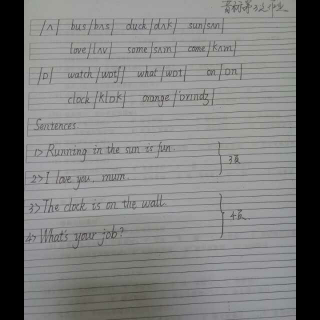 音标第32次作业
/ʌ/ bus/bʌs duck/dʌk/ sun/sʌn/
love/lʌv some/sʌm/ come/kʌm/
/ɒ/ watch/wɒtʃ/ what/wɒt on/ɒn/
clock/klɒk orange/ɒrindʒ/
Sentences
1> Running in the sun is fun.
2> I love you, mum.
3遍
3> The clock is on the wall.
4> What's your job?
4遍